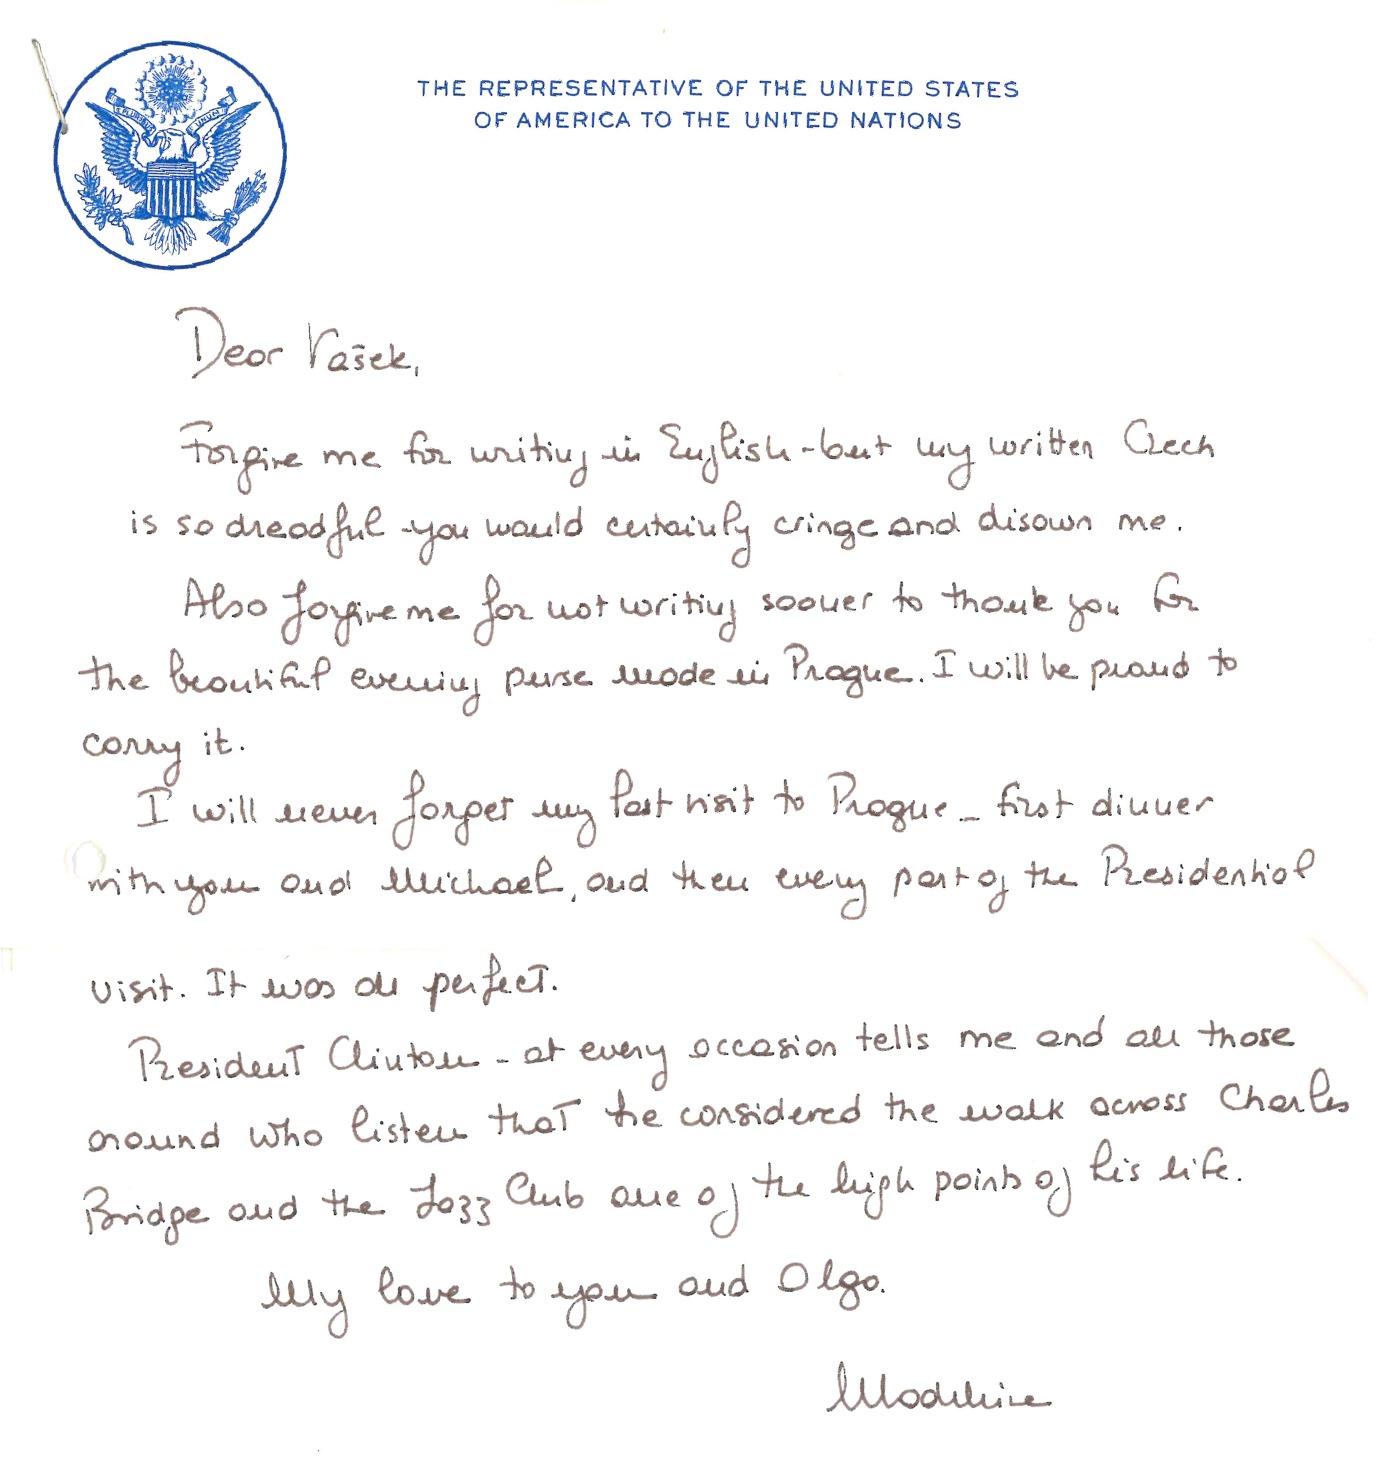 THE REPRESENTATIVE OF THE UNITED STATES
OF AMERICA TO THE UNITED NATIONS
E PLURIBUS UNUM
Dear Vašek,
Forgive me for writing in English - but my written Czech
is so dreadful - you would certainly cringe and disown me.
Also forgive me for not writing sooner to thank you for
the beautiful evening purse made in Prague. I will be proud to
carry it.
I will never forget my last visit to Prague - first dinner
with you and Michael, and then every part of the Presidential
visit. It was all perfect.
President Clinton - at every occasion tells me and all those
around who listen that he considered the walk across Charles
Bridge and the Jazz Club one of the high points of his life.
My love to you and Olga.
Madeleine